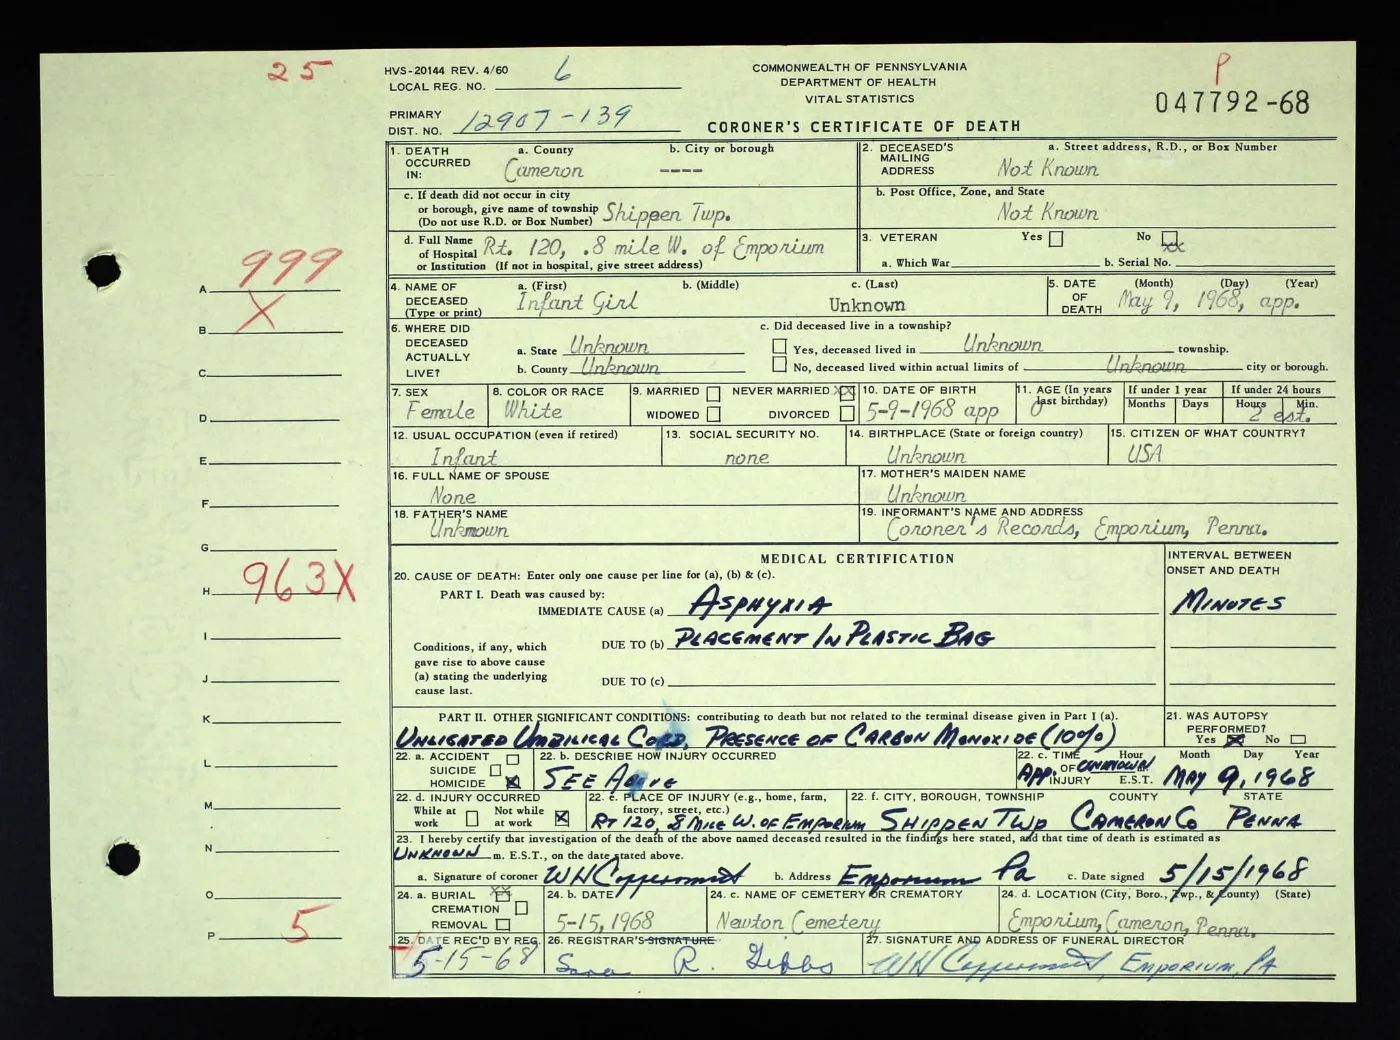 25
HVS-20144 REV. 4/60
LOCAL REG. NO. 6
COMMONWEALTH OF PENNSYLVANIA
DEPARTMENT OF HEALTH
VITAL STATISTICS
P
047792-68
PRIMARY
DIST. NO. 12907-139
CORONER'S CERTIFICATE OF DEATH
1. DEATH OCCURRED IN: a. County Cameron b. City or borough ----
2. DECEASED'S MAILING ADDRESS a. Street address, R.D., or Box Number Not Known
c. If death did not occur in city
or borough, give name of township Shippen Twp.
(Do not use R.D. or Box Number)
b. Post Office, Zone, and State
Not Known
d. Full Name
of Hospital Rt. 120, .8 mile W. of Emporium
or Institution (If not in hospital, give street address)
3. VETERAN Yes No XX
a. Which War b. Serial No.
4. NAME OF DECEASED (Type or print) a. (First) Infant Girl b. (Middle) c. (Last) Unknown
5. DATE OF DEATH (Month) (Day) (Year) May 9, 1968, app.
6. WHERE DID DECEASED ACTUALLY LIVE?
a. State Unknown
b. County Unknown
c. Did deceased live in a township?
Yes, deceased lived in Unknown township.
No, deceased lived within actual limits of Unknown city or borough.
7. SEX Female
8. COLOR OR RACE White
9. MARRIED NEVER MARRIED XX
WIDOWED DIVORCED
10. DATE OF BIRTH 5-9-1968 app
11. AGE (In years last birthday) 0
If under 1 year Months Days
If under 24 hours Hours Min. 2 est.
12. USUAL OCCUPATION (even if retired) Infant
13. SOCIAL SECURITY NO. none
14. BIRTHPLACE (State or foreign country) Unknown
15. CITIZEN OF WHAT COUNTRY? USA
16. FULL NAME OF SPOUSE
None
17. MOTHER'S MAIDEN NAME
Unknown
18. FATHER'S NAME
Unkmown
19. INFORMANT'S NAME AND ADDRESS
Coroner's Records, Emporium, Penna.
MEDICAL CERTIFICATION
INTERVAL BETWEEN
ONSET AND DEATH
20. CAUSE OF DEATH: Enter only one cause per line for (a), (b) & (c).
PART I. Death was caused by:
IMMEDIATE CAUSE (a) ASPHYXIA MINUTES
Conditions, if any, which
gave rise to above cause
(a) stating the underlying
cause last.
DUE TO (b) PLACEMENT IN PLASTIC BAG
DUE TO (c)
PART II. OTHER SIGNIFICANT CONDITIONS: contributing to death but not related to the terminal disease given in Part I (a).
UNLIGATED UMBILICAL CORD, PRESENCE OF CARBON MONOXIDE (10%)
21. WAS AUTOPSY
PERFORMED?
Yes X No
22. a. ACCIDENT
SUICIDE
HOMICIDE X
22. b. DESCRIBE HOW INJURY OCCURRED
SEE ABOVE
22. c. TIME OF INJURY Hour E.S.T. Month Day Year
APP. UNKNOWN MAY 9, 1968
22. d. INJURY OCCURRED
While at work Not while at work X
22. e. PLACE OF INJURY (e.g., home, farm,
factory, street, etc.)
RT 120, .8 MILE W. OF EMPORIUM
22. f. CITY, BOROUGH, TOWNSHIP COUNTY STATE
SHIPPEN TWP CAMERON CO PENNA
23. I hereby certify that investigation of the death of the above named deceased resulted in the findings here stated, and that time of death is estimated as
UNKNOWN m. E.S.T., on the date stated above.
a. Signature of coroner WH Coppersmith b. Address Emporium Pa c. Date signed 5/15/1968
24. a. BURIAL XX
CREMATION
REMOVAL
24. b. DATE
5-15, 1968
24. c. NAME OF CEMETERY OR CREMATORY
Newton Cemetery
24. d. LOCATION (City, Boro., Twp., & County) (State)
Emporium, Cameron, Penna.
25. DATE REC'D BY REG.
5-15-68
26. REGISTRAR'S SIGNATURE
Sara R. Gibbs
27. SIGNATURE AND ADDRESS OF FUNERAL DIRECTOR
WH Coppersmith, EMPORIUM, PA
A 999
B X
C
D
E
F
G
H 963X
I
J
K
L
M
N
O
P 5